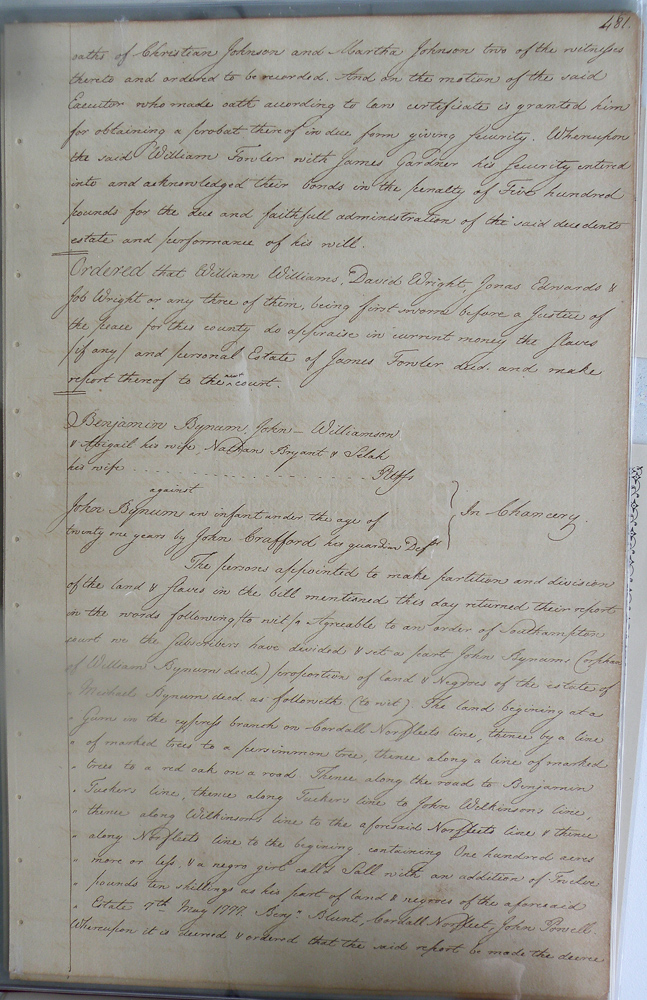 481.
oaths of Christian Johnson and Martha Johnson two of the witnesses
thereto and ordered to be recorded. And on the motion of the said
Executor who made oath according to law certificate is granted him
for obtaining a probat thereof in due form giving security. Whereupon
the said William Fowler with James Gardner his security entered
into and acknowledged their bonds in the penalty of Five hundred
pounds for the due and faithfull administration of the said decedents
estate and performance of his will.
Ordered that William Williams, David Wright, Jonas Edwards &
Job Wright or any three of them, being first sworn before a Justice of
the peace for this county do appraise in current money the slaves
(if any) and personal Estate of James Fowler decd. and make
report thereof to the next court.
Benjamin Bynum, John Williamson
& Abigail his wife, Nathan Bryant & Selah
his wife . . . . . . . . . . . . . . . . . . Pltffs
against
John Bynum an infant under the age of
twenty one years by John Crafford his guardian Deft
In Chancery.
The persons appointed to make partition and division
of the land & slaves in the bill mentioned this day returned their report
in the words following to wit, Agreable to an order of Southampton
court we the subscribers have divided & set a part John Bynums (orphan
of William Bynum decd.) proportion of land & Negroes of the estate of
" Michael Bynum decd as followeth (to wit) The land begining at a
" Gum in the cypress branch on Cordall Norfleets line, thence by a line
" of marked trees to a persimmon tree, thence along a line of marked
" trees to a red oak on a road Thence along the road to Benjamin
" Tuckers line, thence along Tuckers line to John Wilkinsons line,
" thence along Wilkinsons line to the aforesaid Norfleets line & thence
" along Norfleets line to the begining containing One hundred acres
" more or less & a negro girl call'd Sall with an addition of Twelve
" pounds ten shillings as his part of land & negroes of the aforesaid
" Estate 7th. May 1777. Benjn. Blunt, Cordall Norfleet, John Powell.
Whereupon it is decreed & ordered that the said report be made the decree